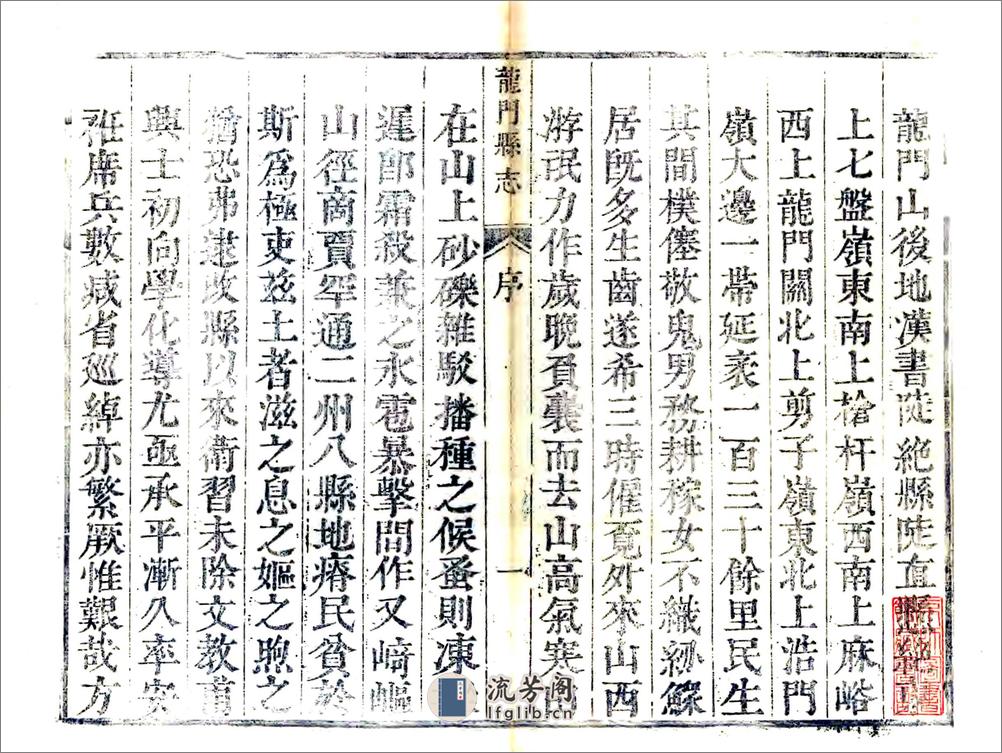 龍門山後地漢書陡絕縣陡直
上七盤嶺東南上槍杆嶺西南上麻峪
西上龍門關北上剪子嶺東北上浩門
嶺大邊一帶延袤一百三十餘里民生
其間樸僿敬鬼男務耕稼女不織紛鰥
居旣多生齒遂希三時僱覓外來山西
游氓力作歲晚負囊而去山高氣寒
龍門縣志
序
一
在山上砂礫雜駁播種之候蚤則凍
遲卽霜殺兼之氷雹暴擊間作又崎嶇
山徑商賈罕通二州八縣地瘠民貧於
斯爲極吏茲土者滋之息之嫗之煦之
猶恐弗逮改縣以來衞習未除文教甫
興士初向學化導尤亟承平漸久率安
袵席兵數减省巡綽亦繁厥惟艱哉方
流芳阁
lfglib.cn